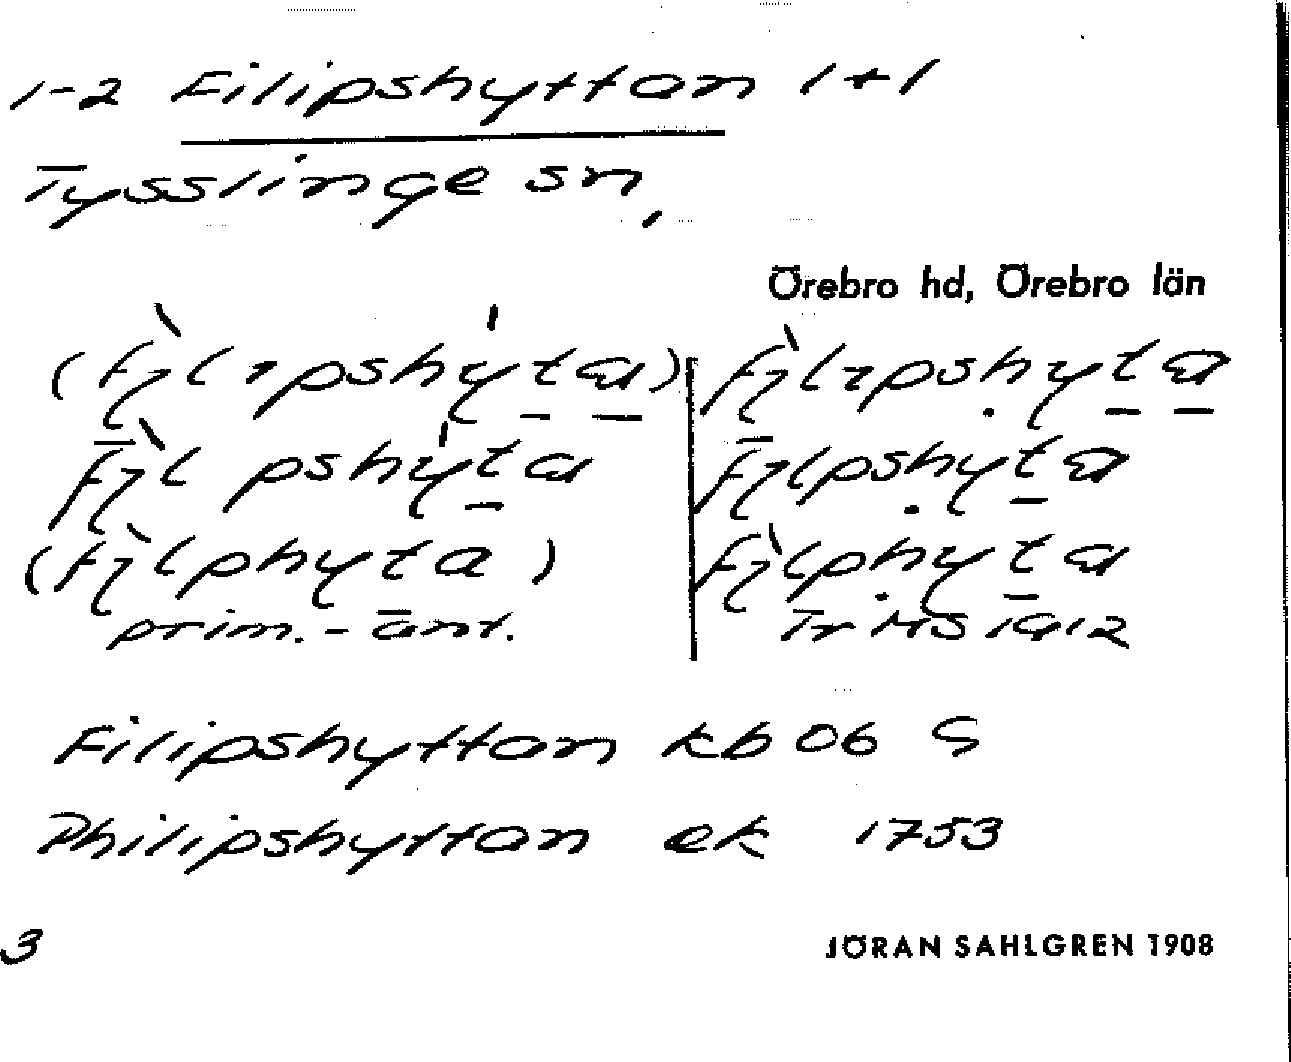 1-2 Filipshyttan 1+1
Tysslinge sn,
Örebro hd, Örebro län
(fìlıpshýta) fìlıpshyta
fìl pshýta filpshyta
(fìlphyta) fìlphyta
prim.-ant. Tr HS 1912
Filipshyttan kb 06 S
Philipshyttan ek 1753
3 JÖRAN SAHLGREN 1908